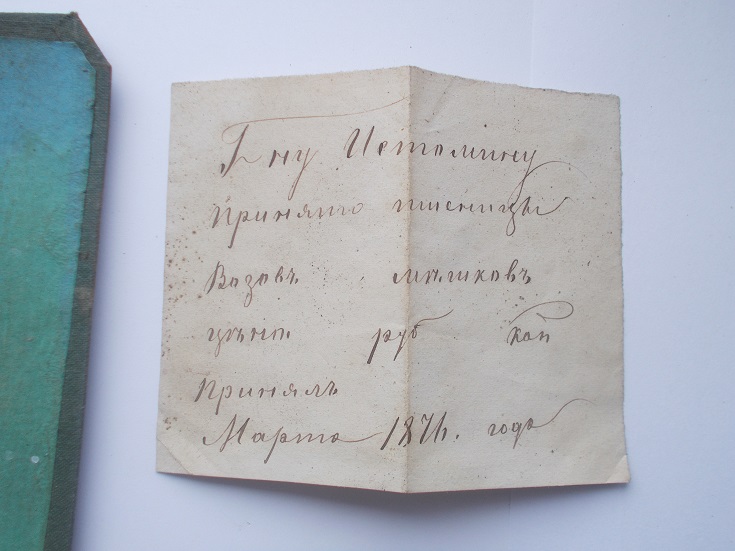 Гну Истомину
Принято пшеницы
Возовъ мѣшковъ
цѣною руб коп
Принялъ
Марта 1871. года